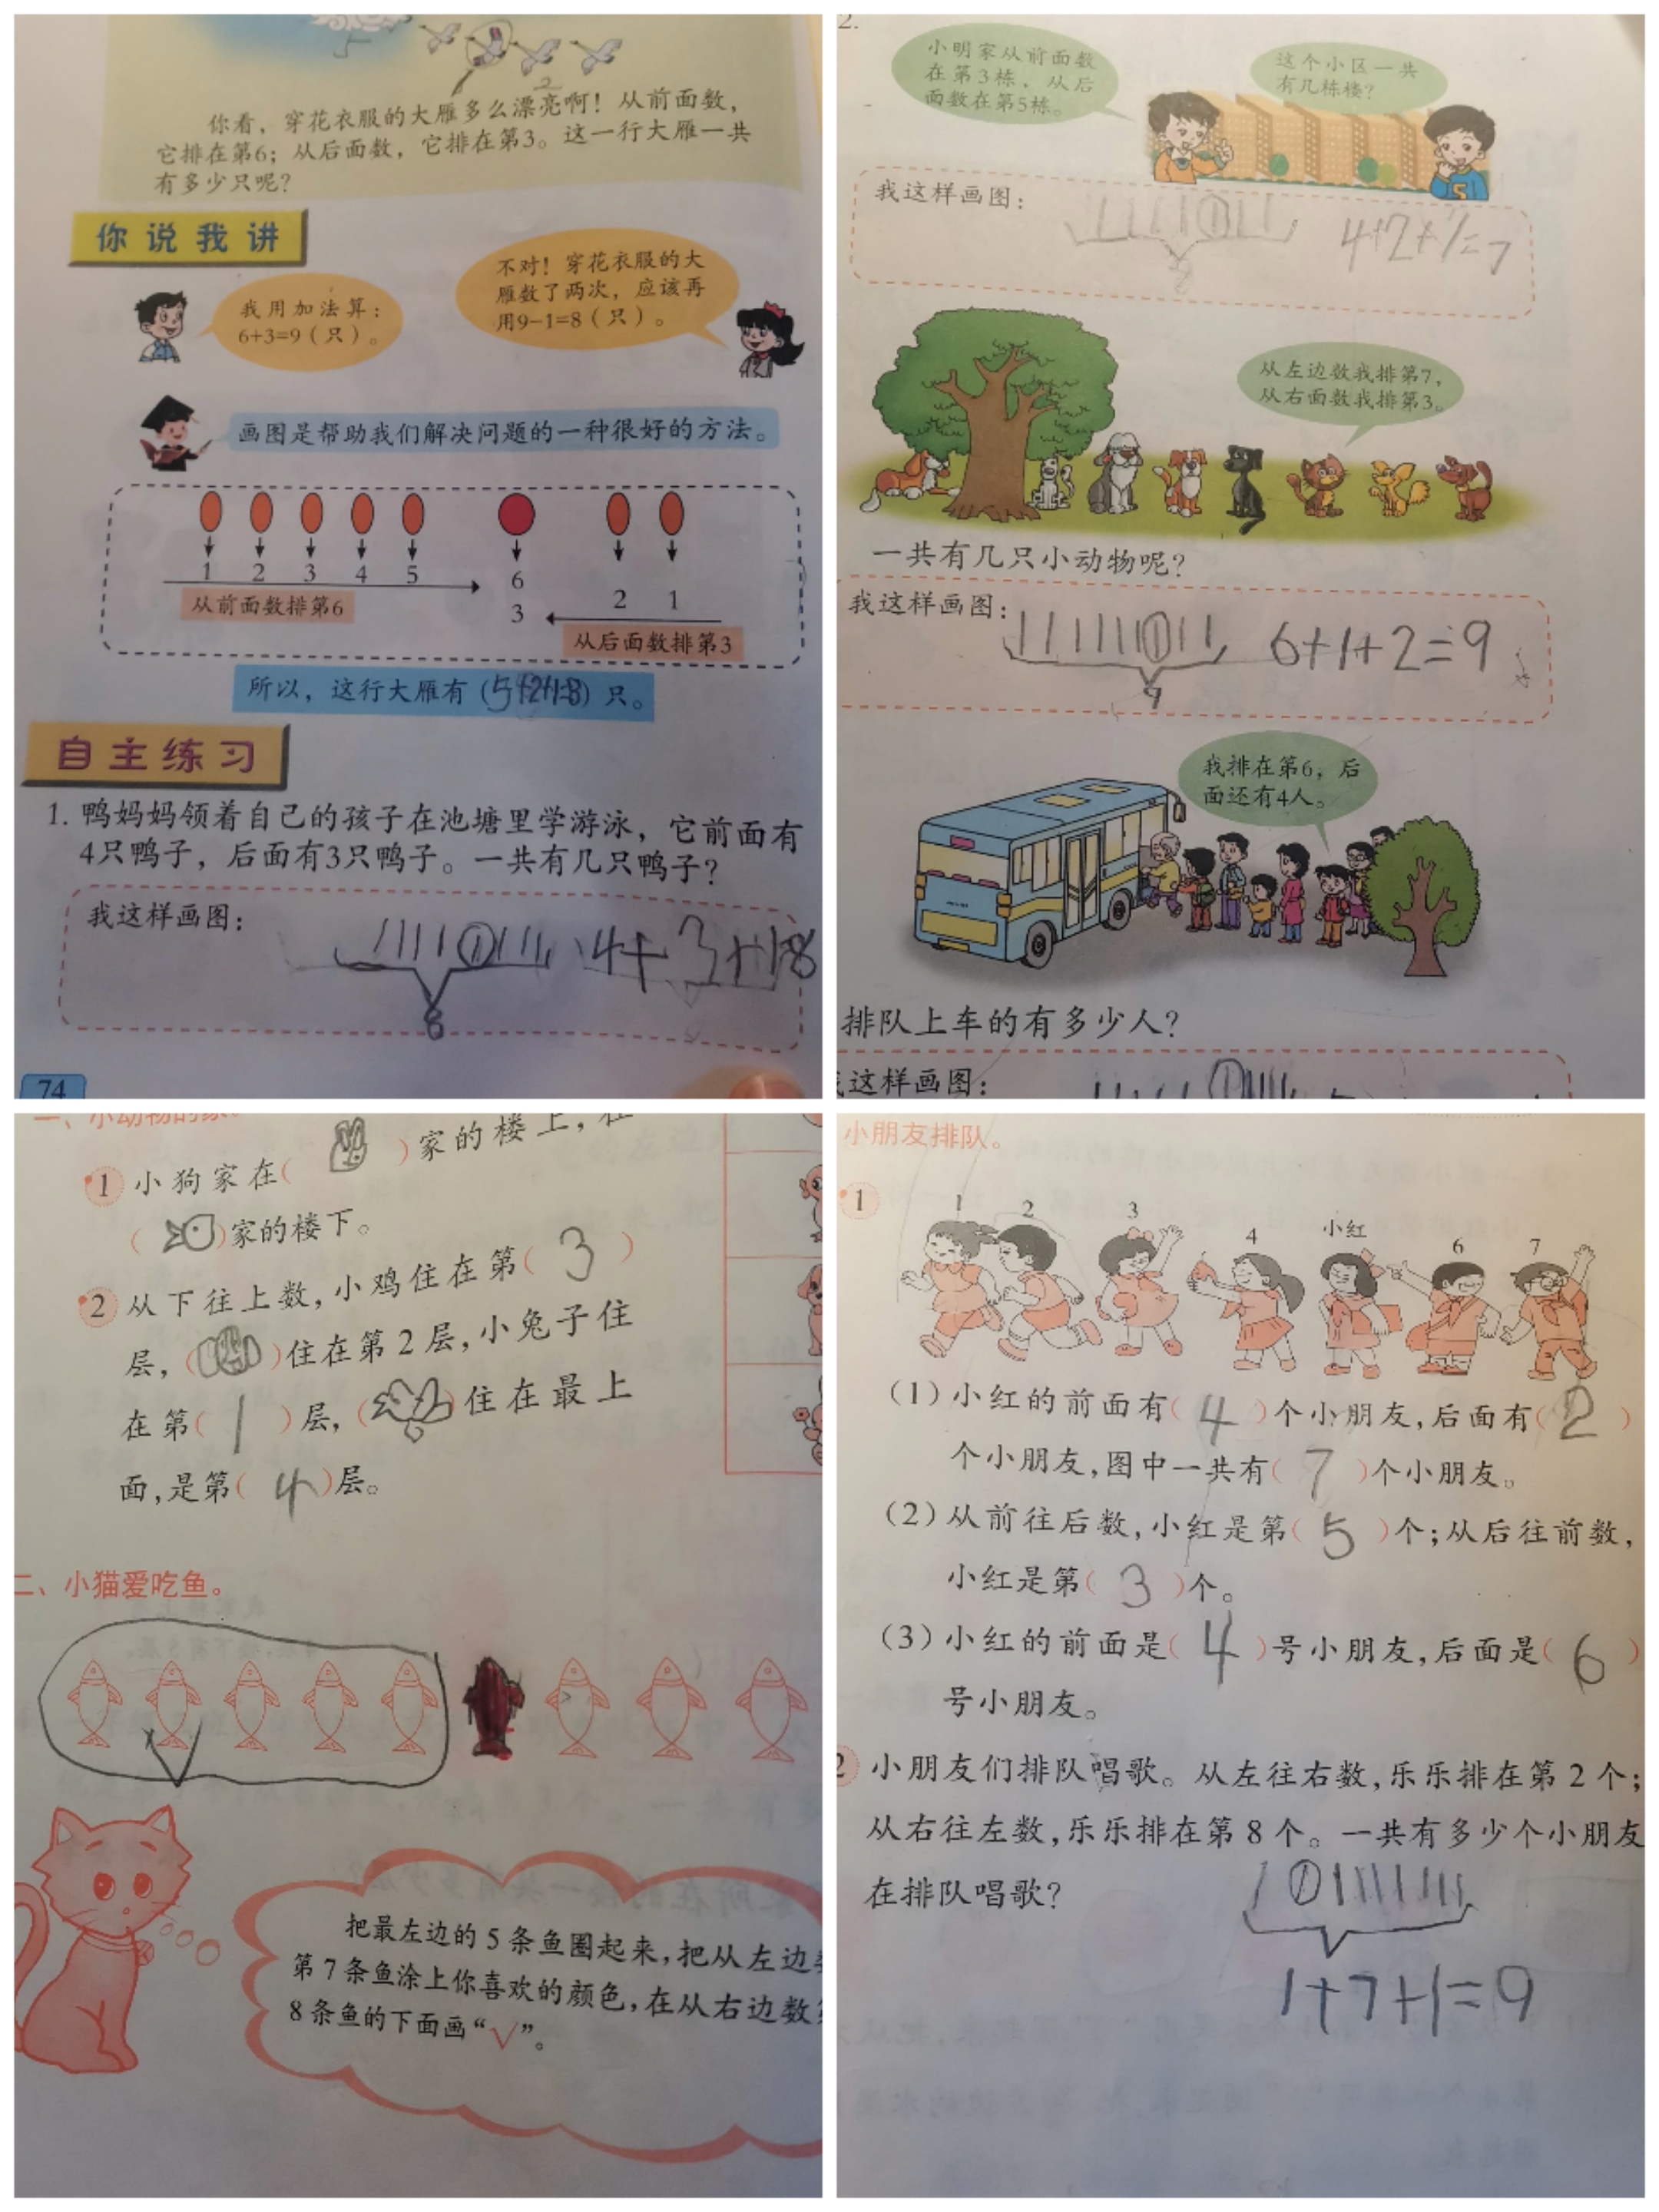 5
2
你看，穿花衣服的大雁多么漂亮啊！从前面数，
它排在第6；从后面数，它排在第3。这一行大雁一共
有多少只呢？
你说我讲
我用加法算：
6+3=9（只）。
不对！穿花衣服的大
雁数了两次，应该再
用9-1=8（只）。
画图是帮助我们解决问题的一种很好的方法。
1 2 3 4 5 6
从前面数排第6
3 2 1
从后面数排第3
所以，这行大雁有（5+2+1=8）只。
自主练习
1. 鸭妈妈领着自己的孩子在池塘里学游泳，它前面有
4只鸭子，后面有3只鸭子。一共有几只鸭子？
我这样画图：
4+3+1=8
8
74
2.
小明家从前面数
在第3栋，从后
面数在第5栋。
这个小区一共
有几栋楼？
5
我这样画图：
4+2+1=7
从左边数我排第7，
从右面数我排第3。
一共有几只小动物呢？
我这样画图：
6+1+2=9
9
我排在第6，后
面还有4人。
排队上车的有多少人？
这样画图：
一、小动物的家。
1 小狗家在（ ）家的楼上，在
（ ）家的楼下。
2 从下往上数，小鸡住在第（ 3 ）
层，（ ）住在第2层，小兔子住
在第（ 1 ）层，（ ）住在最上
面，是第（ 4 ）层。
二、小猫爱吃鱼。
把最左边的5条鱼圈起来，把从左边
第7条鱼涂上你喜欢的颜色，在从右边数
8条鱼的下面画“√”。
小朋友排队。
1
1 2 3 4 小红 6 7
（1）小红的前面有（ 4 ）个小朋友，后面有（ 2 ）
个小朋友，图中一共有（ 7 ）个小朋友。
（2）从前往后数，小红是第（ 5 ）个；从后往前数，
小红是第（ 3 ）个。
（3）小红的前面是（ 4 ）号小朋友，后面是（ 6 ）
号小朋友。
2 小朋友们排队唱歌。从左往右数，乐乐排在第2个；
从右往左数，乐乐排在第8个。一共有多少个小朋友
在排队唱歌？
1+7+1=9